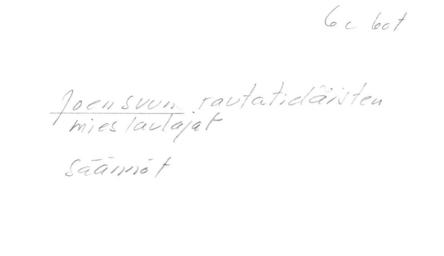 6c bot
Joensuun rautatieläisten
mieslaulajat
säännöt